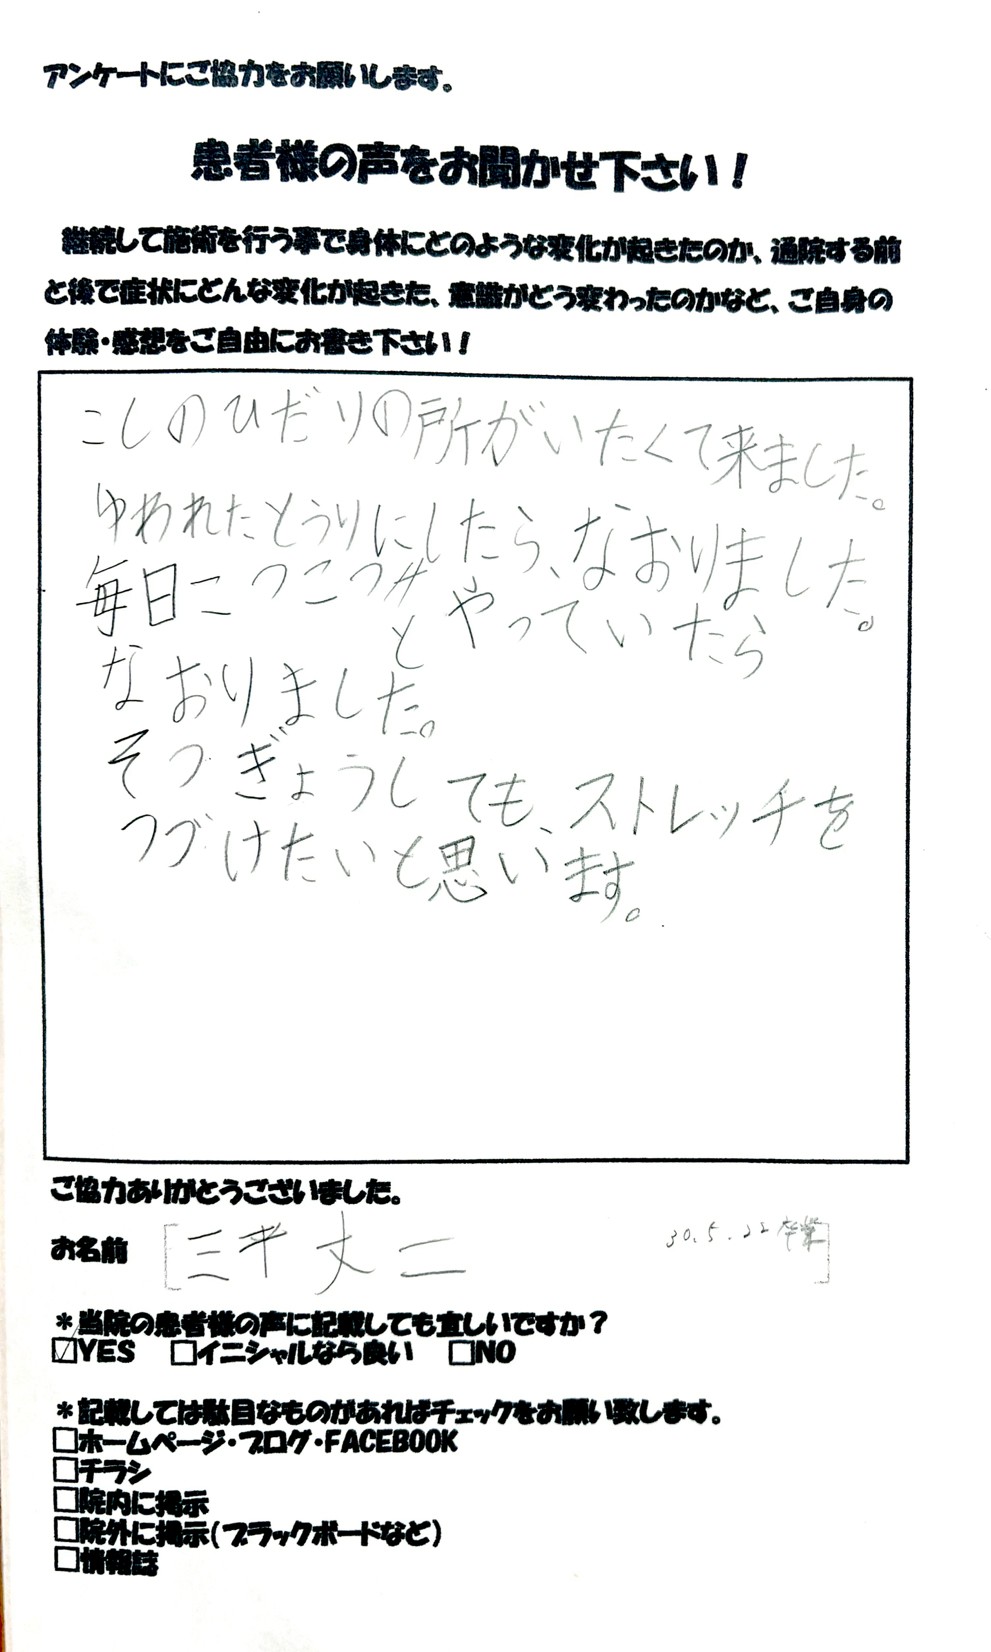 アンケートにご協力をお願いします。
患者様の声をお聞かせ下さい！
継続して施術を行う事で身体にどのような変化が起きたのか、通院する前
と後で症状にどんな変化が起きた、意識がどう変わったのかなど、ご自身の
体験・感想をご自由にお書き下さい！
こしのひだりの所がいたくて来ました。
ゆわれたとうりにしたら、なおりました。
毎日こつこつ
とやっていたら
なおりました。
そつぎょうしても、ストレッチを
つづけたいと思います。
ご協力ありがとうございました。
お名前 [三平丈二 30.5.22 卒業]
＊当院の患者様の声に記載しても宜しいですか？
☑YES □イニシャルなら良い □NO
＊記載しては駄目なものがあればチェックをお願い致します。
□ホームページ・ブログ・FACEBOOK
□チラシ
□院内に掲示
□院外に掲示(ブラックボードなど)
□情報誌